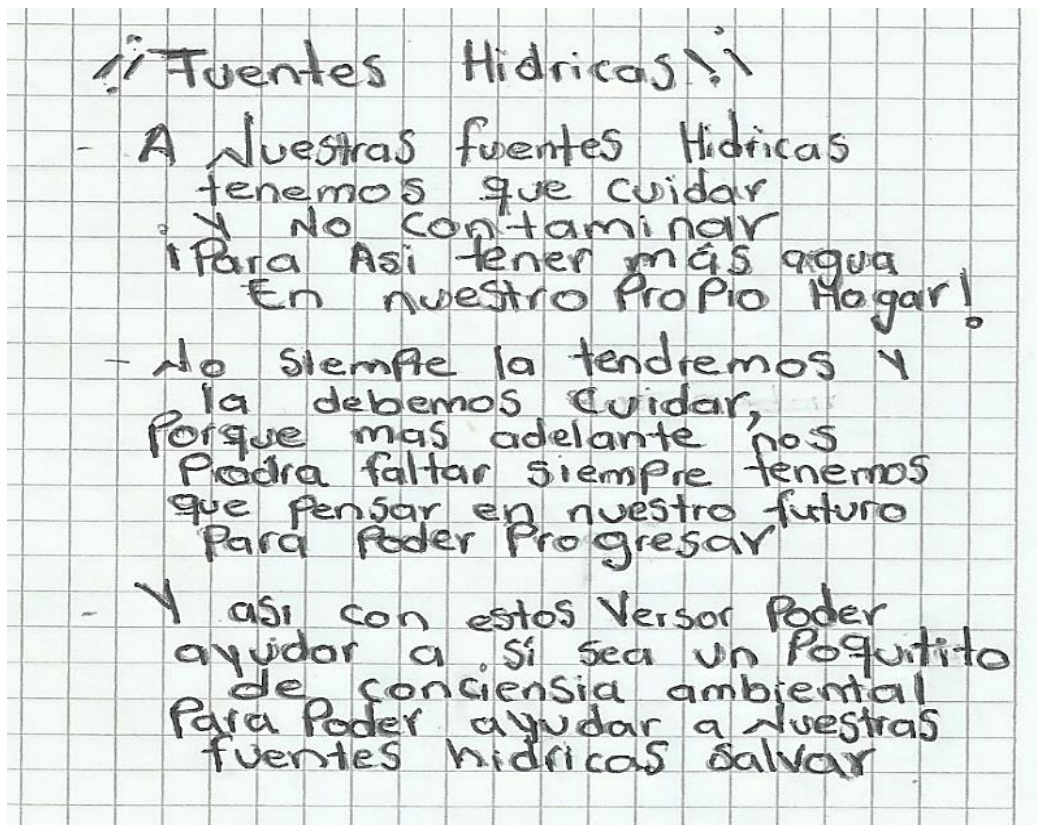 ¡¡Fuentes Hidricas!!
- A Nuestras fuentes Hidricas
tenemos que cuidar
. Y No contaminar
¡Para Asi tener más agua
En nuestro Propio Hogar!
- No siempre la tendremos Y
la debemos cuidar,
Porque mas adelante nos
Podra faltar siempre tenemos
que pensar en nuestro futuro
Para Poder Progresar
- Y asi con estos Versor Poder
ayudar a . Si sea un Poquitito
de conciensia ambiental
Para Poder ayudar a Nuestras
fuentes hidricas salvar